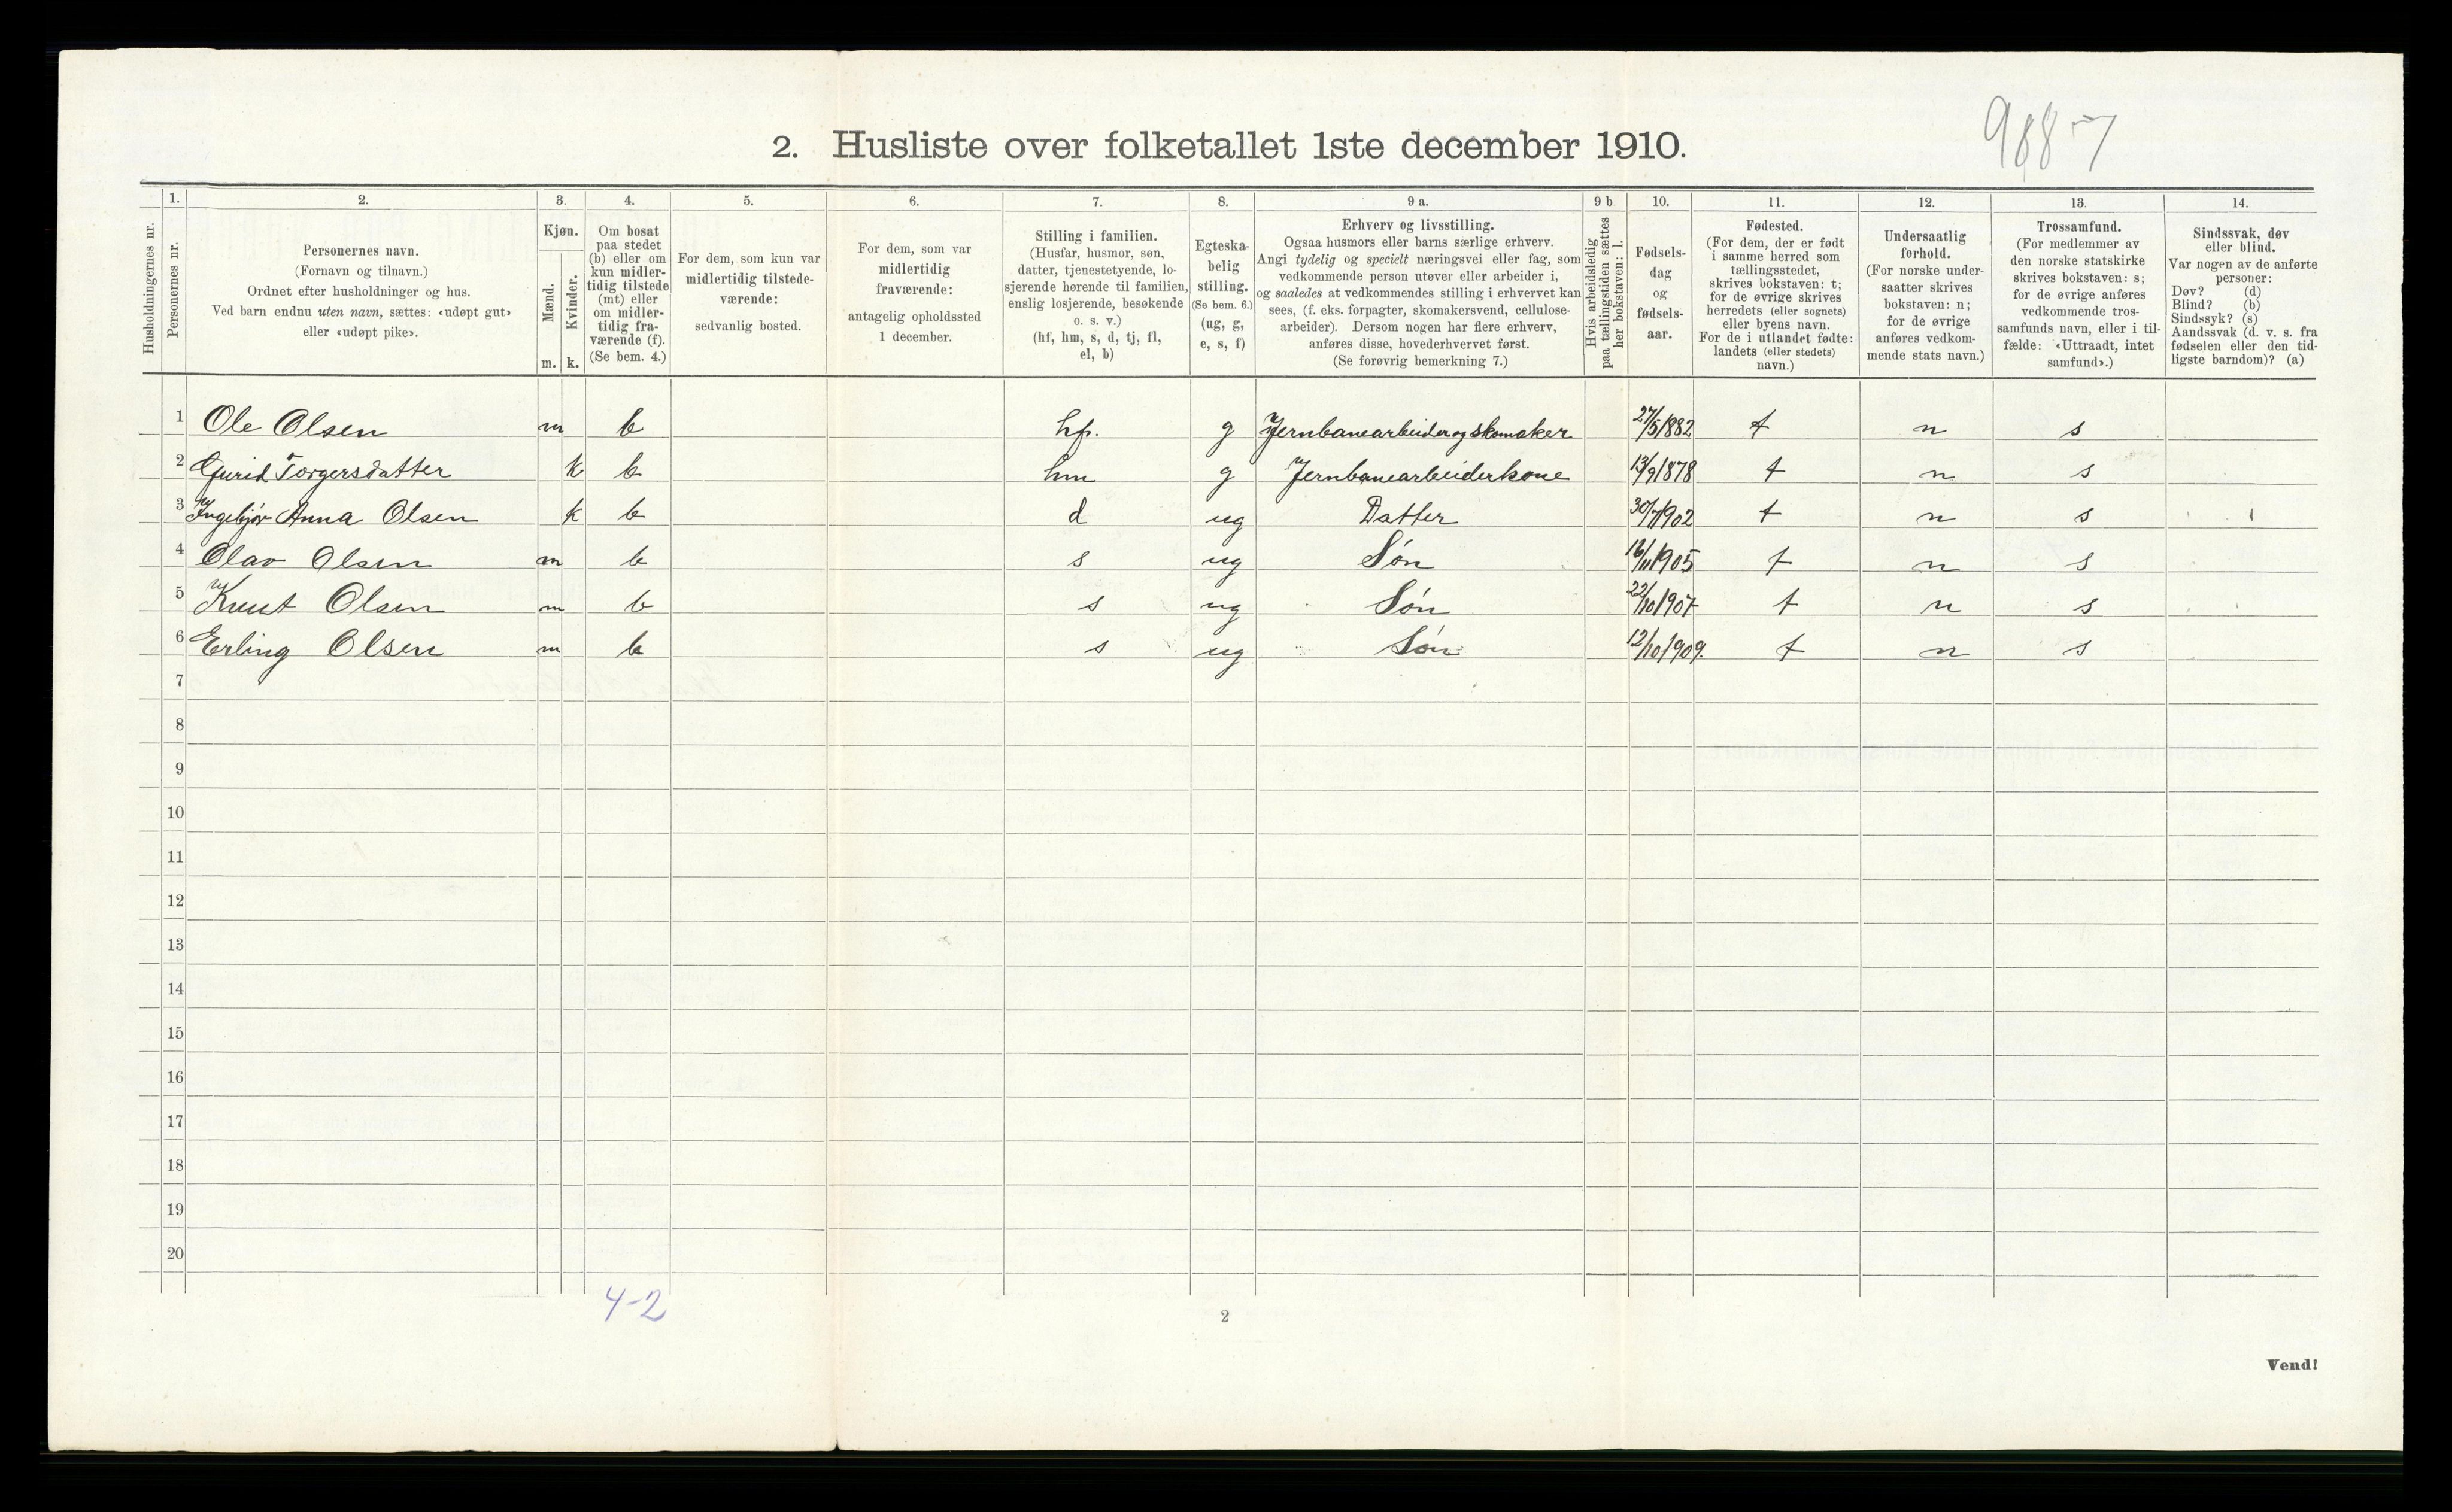 9887
2. Husliste over folketallet 1ste december 1910.
Husholdningernes nr.
1. Personernes nr.
2. Personernes navn. (Fornavn og tilnavn.) Ordnet efter husholdninger og hus. Ved barn endnu uten navn, sættes: «udøpt gut» eller «udøpt pike».
3. Kjøn. Mænd. m. Kvinder. k.
4. Om bosat paa stedet (b) eller om kun midlertidig tilstede (mt) eller om midlertidig fraværende (f). (Se bem. 4.)
5. For dem, som kun var midlertidig tilstedeværende: sedvanlig bosted.
6. For dem, som var midlertidig fraværende: antagelig opholdssted 1 december.
7. Stilling i familien. (Husfar, husmor, søn, datter, tjenestetyende, losjerende hørende til familien, enslig losjerende, besøkende o. s. v.) (hf, hm, s, d, tj, fl, el, b)
8. Egteskabelig stilling. (Se bem. 6.) (ug, g, e, s, f)
9 a. Erhverv og livsstilling. Ogsaa husmors eller barns særlige erhverv. Angi tydelig og specielt næringsvei eller fag, som vedkommende person utøver eller arbeider i, og saaledes at vedkommendes stilling i erhvervet kan sees, (f. eks. forpagter, skomakersvend, cellulosearbeider). Dersom nogen har flere erhverv, anføres disse, hovederhvervet først. (Se forøvrig bemerkning 7.)
9 b Hvis arbeidsledig paa tællingstiden sættes her bokstaven: l.
10. Fødselsdag og fødselsaar.
11. Fødested. (For dem, der er født i samme herred som tællingsstedet, skrives bokstaven: t; for de øvrige skrives herredets (eller sognets) eller byens navn. For de i utlandet fødte: landets (eller stedets) navn.)
12. Undersaatlig forhold. (For norske undersaatter skrives bokstaven: n; for de øvrige anføres vedkommende stats navn.)
13. Trossamfund. (For medlemmer av den norske statskirke skrives bokstaven: s; for de øvrige anføres vedkommende trossamfunds navn, eller i tilfælde: «Uttraadt, intet samfund».)
14. Sindssvak, døv eller blind. Var nogen av de anførte personer: Døv? (d) Blind? (b) Sindssyk? (s) Aandssvak (d. v. s. fra fødselen eller den tidligste barndom)? (a)
1 Ole Olsen m b hf. g Jernbanearbeider og skomaker 27/5 1882 t n s
2 Gurid Torgersdatter k b hm g Jernbanearbeiderkone 13/9 1878 t n s
3 Ingebjør Anna Olsen k b d ug Datter 30/7 1902 t n s
4 Olav Olsen m b s ug Søn 16/11 1905 t n s
5 Knut Olsen m b s ug Søn 22/10 1907 t n s
6 Erling Olsen m b s ug Søn 12/10 1909. t n s
7
8
9
10
11
12
13
14
15
16
17
18
19
20
4-2
2
Vend!